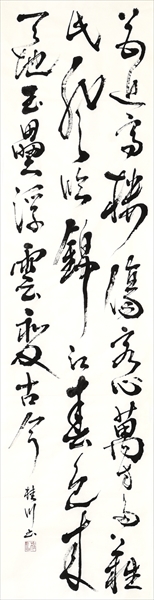 花近高樓傷客心萬方多難
此登臨錦江春色来
天地玉壘浮雲變古今
桂川